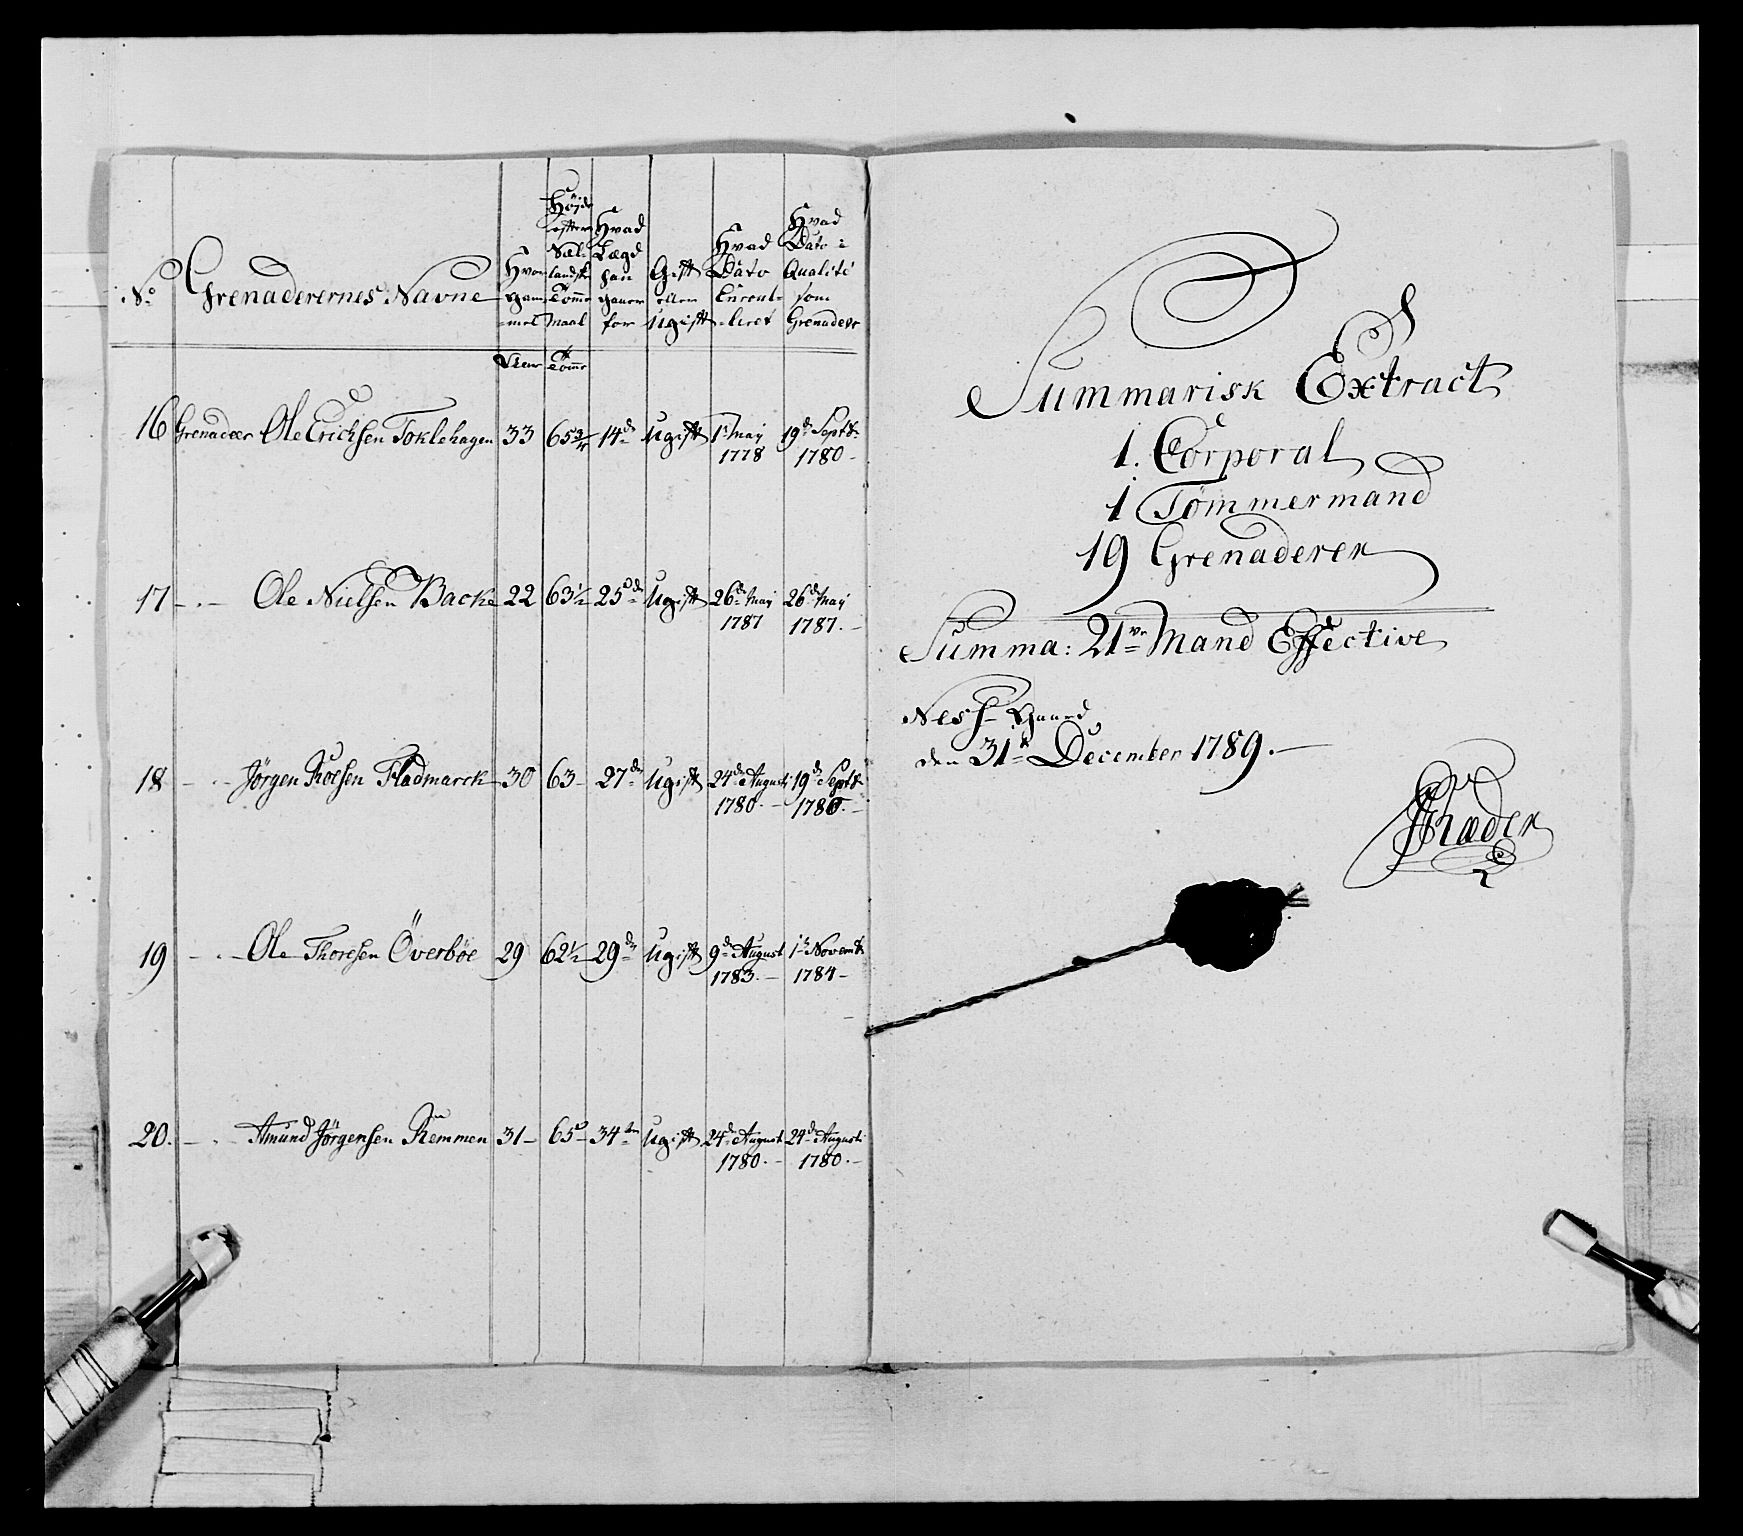 No
Grenaderernes Navne
Hvor gammel
Højde efter Siellandsk Tomme Maal
Hvad Lægd han staaer for
Gift eller Ugift
Hvad Dato Enroulleret
Hvad Dato i Qualité som Grenadeer
Aar Tomr
16 Grenadeer Ole Erichsen Toklehagen 33 65 3/4 14de Ugift 1te May 1778 19de Septbr 1780
17 Ole Nielsen Backe 22 63 1/2 25de Ugift 26de May 1787 26de May 1787.
18 Jörgen Roesen Fladmarck 30 63 27de Ugift 24de Augusti 1780. 19de Septbr 1780.
19 Ole Thoresen Överböe 29 62 1/2 29de Ugift 9de August 1783. 1te Novembr 1784
20. Amund Jörgensen Remmen 31 65 34te Ugift 24de August 1780. 24de Augusti 1780.
Summarisk Extract
1. Corporal
1 Tömmermand
19 Grenaderer
Summa: 21ve Mand Effective
Ness Gaard
den 31te December 1789.